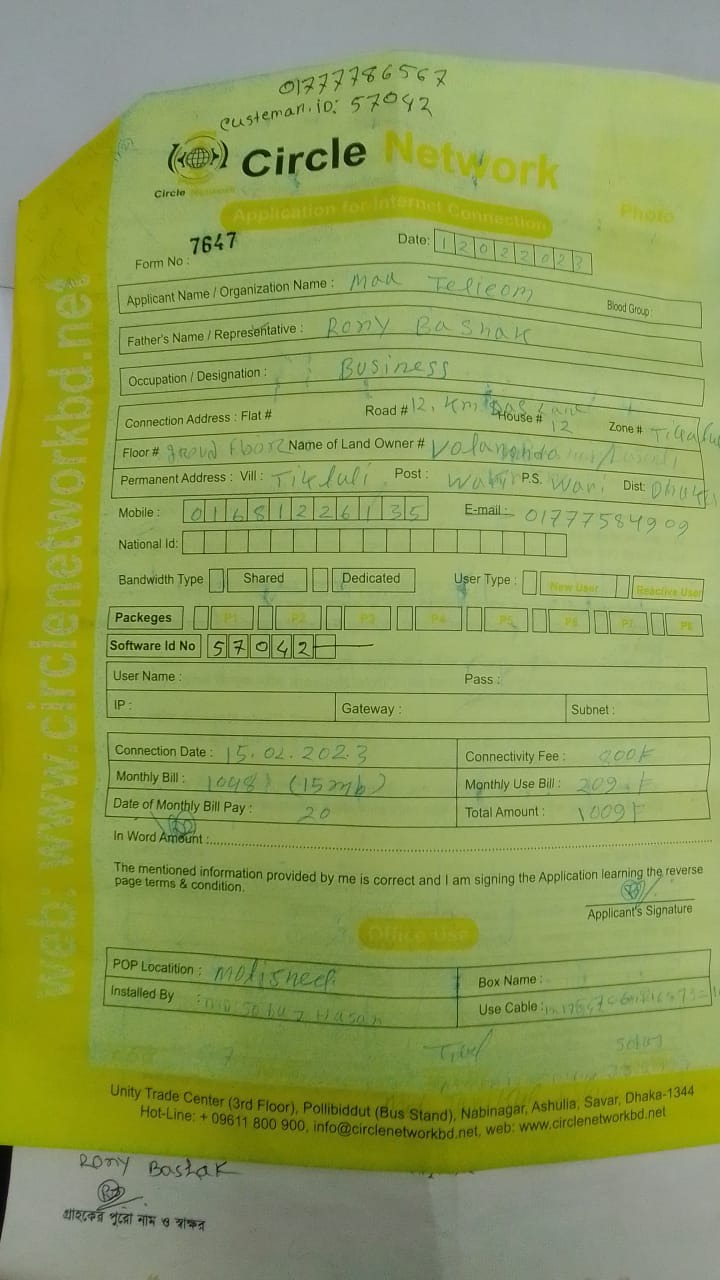 01777786567
custeman.iD: 57042
Circle Network
Circle Network
Application for Internet Connection
Photo
Form No : 7647
Date: 12022023
Applicant Name / Organization Name : Maa Telieom
Blood Group :
Father's Name / Representative : Rony Bashak
Occupation / Designation : Business
Connection Address : Flat # Road # 12, House # 12 Zone #
Floor # groud Floor Name of Land Owner #
Permanent Address : Vill : Tikfuli Post : P.S. Wari Dist: Dhaka
Mobile : 01681226135 E-mail : 01777584909
National Id:
Bandwidth Type Shared Dedicated User Type : New User Reactive User
Packeges P1 P2 P3 P4 P5 P6 P7 P8
Software Id No 57042
User Name : Pass :
IP : Gateway : Subnet :
Connection Date : 15.02.2023 Connectivity Fee : 800৳
Monthly Bill : (15mb) Monthly Use Bill : 209
Date of Monthly Bill Pay : 20 Total Amount : 1009৳
In Word Amount :
The mentioned information provided by me is correct and I am signing the Application learning the reverse
page terms & condition.
Applicant's Signature
Office Use
POP Locatition : Box Name :
Installed By : Hasan Use Cable :
Unity Trade Center (3rd Floor), Pollibiddut (Bus Stand), Nabinagar, Ashulia, Savar, Dhaka-1344
Hot-Line: + 09611 800 900, info@circlenetworkbd.net, web: www.circlenetworkbd.net
web: www.circlenetworkbd.net
Rony Bashak
গ্রাহকের পুরো নাম ও স্বাক্ষর